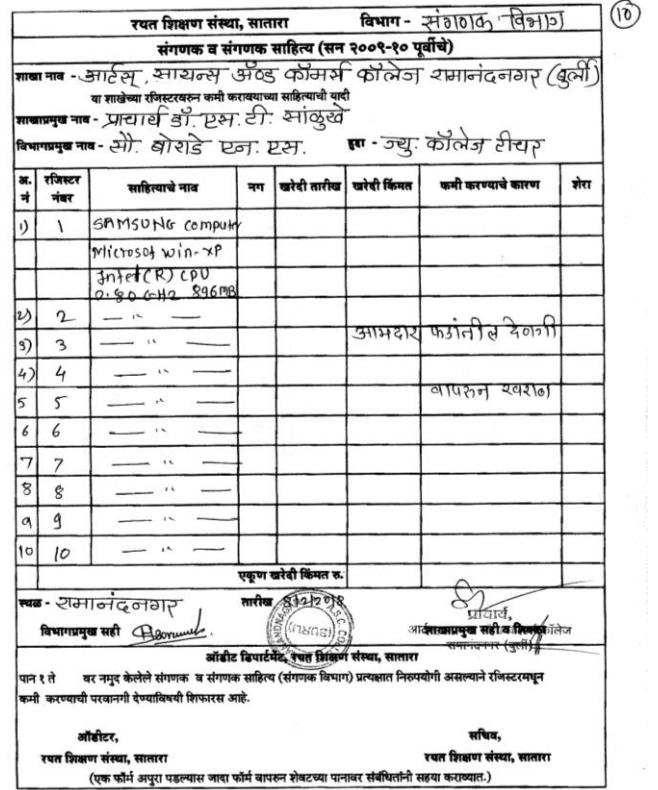 १०
रयत शिक्षण संस्था, सातारा विभाग - संगणक विभाग
संगणक व संगणक साहित्य (सन २००९-१० पूर्वीचे)
शाखा नाव - आर्टस्, सायन्स अ‍ॅण्ड कॉमर्स कॉलेज रामानंदनगर (बुर्ली)
या शाखेच्या रजिस्टरवरुन कमी करावयाच्या साहित्याची यादी
शाखाप्रमुख नाव - प्राचार्य डॉ. एस. टी. साळुंखे
विभागप्रमुख नाव - सौ. बोराडे एन. एस. हुद्दा - ज्यु. कॉलेज टीचर
अ. नं रजिस्टर नंबर साहित्याचे नाव नग खरेदी तारीख खरेदी किंमत कमी करण्याचे कारण शेरा
१) 1 SAMSUNG Computer
Microsoft Win-XP
Intel(R) CPU
0.80 GHz 896MB
२) 2 — " —
३) 3 — " — आमदार फंडांतील देणगी
4) 4 — " —
5 5 — " — वापरुन खराब
6 6 — " —
7 7 — " —
8 8 — " —
9 9 — " —
10 10 — " —
एकूण खरेदी किंमत रु.
स्थळ - रामानंदनगर तारीख 8/2/2018
प्राचार्य,
विभागप्रमुख सही शाखाप्रमुख सही व शिक्का
रामानंदनगर (बुर्ली)
ऑडीट डिपार्टमेंट, रयत शिक्षण संस्था, सातारा
पान १ ते वर नमुद केलेले संगणक व संगणक साहित्य (संगणक विभाग) प्रत्यक्षात निरुपयोगी असल्याने रजिस्टरमधून
कमी करण्याची परवानगी देण्याविषयी शिफारस आहे.
ऑडीटर, सचिव,
रयत शिक्षण संस्था, सातारा रयत शिक्षण संस्था, सातारा
(एक फॉर्म अपुरा पडल्यास जादा फॉर्म वापरुन शेवटच्या पानावर संबंधितांनी सहया कराव्यात.)